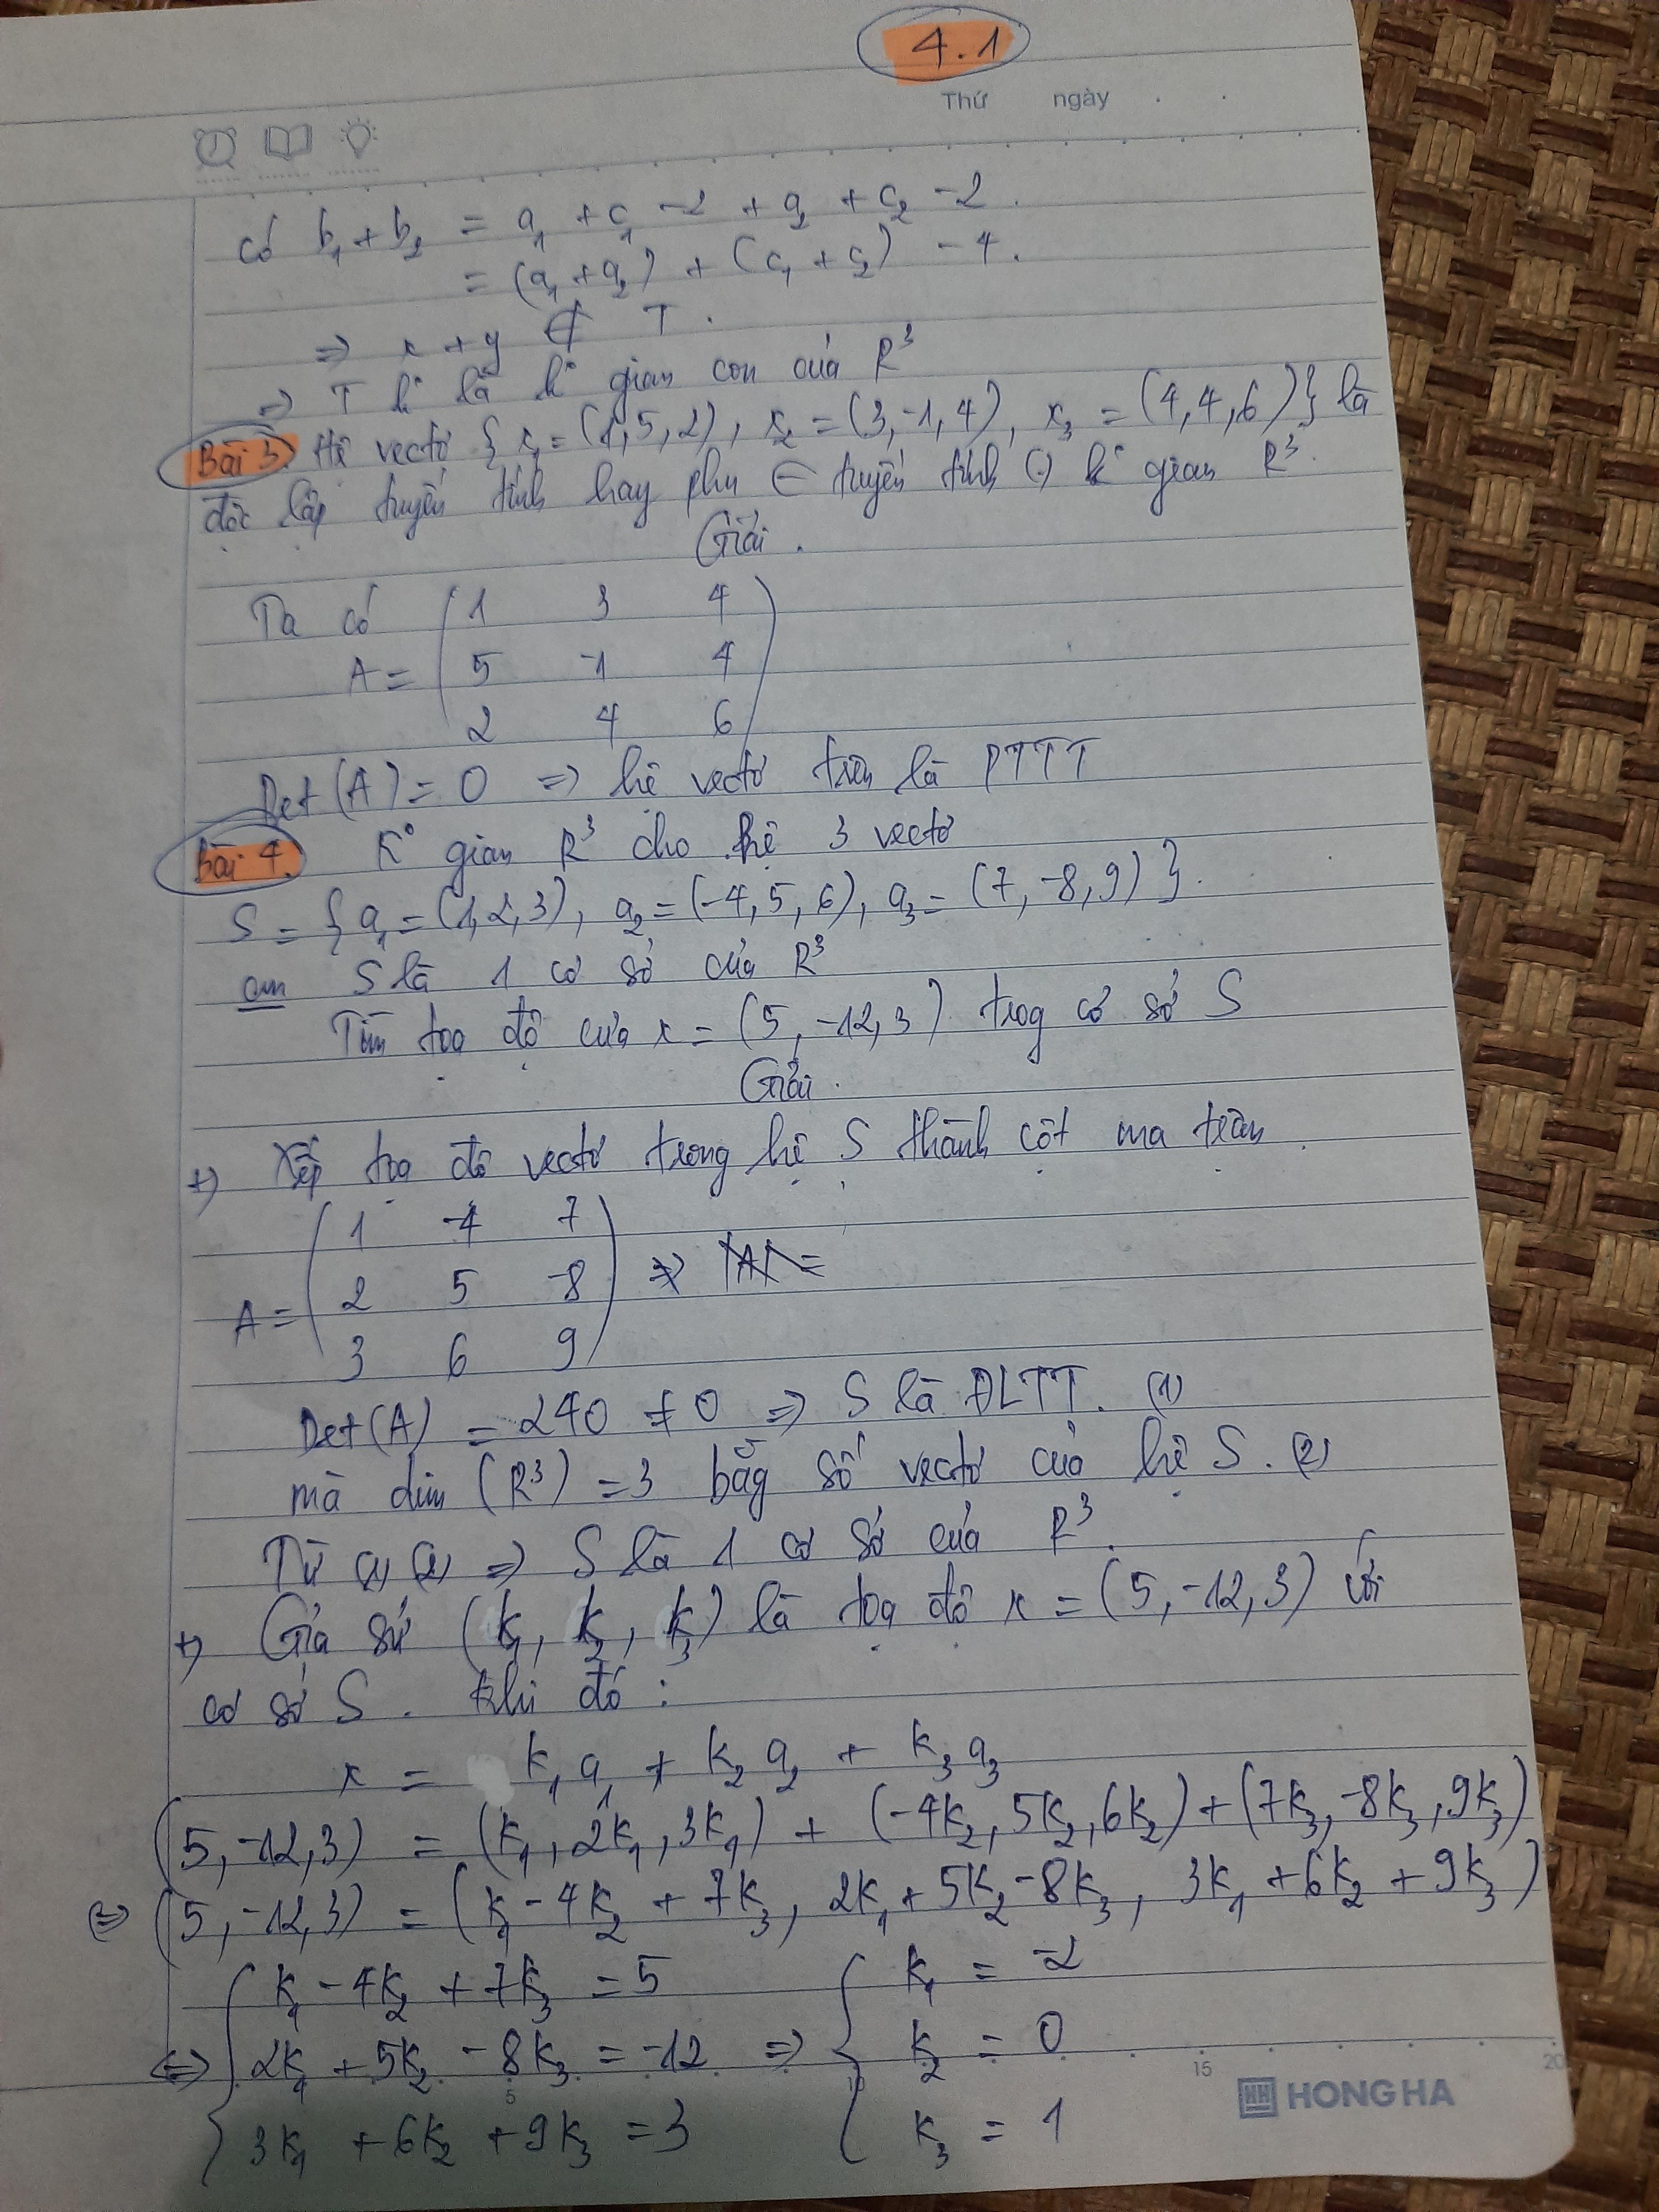 4.1
Thứ ngày
có b₁ + b₂ = a₁ + c₁ - 2 + a₂ + c₂ - 2.
= (a₁ + a₂) + (c₁ + c₂) - 4.
⇒ x + y ∉ T.
⇒ T k° là k° gian con của R³
Bài 3. Hệ vectơ { x₁ = (1,5,2), x₂ = (3,-1,4), x₃ = (4,4,6)} là
độc lập tuyến tính hay phụ ∈ tuyến tính (.) k° gian R³.
Giải.
Ta có
A = ( 1 3 4
5 -1 4
2 4 6 )
Det(A) = 0 ⇒ hệ vectơ trên là PTTT
Bài 4. K° gian R³ cho hệ 3 vectơ
S = { a₁ = (1,2,3), a₂ = (-4,5,6), a₃ = (7,-8,9) }.
cm S là 1 cơ sở của R³
Tìm tọa độ của x = (5,-12,3) trog cơ sở S
Giải.
+) Xếp tọa độ vectơ trong hệ S thành cột ma trận.
A = ( 1 -4 7
2 5 -8
3 6 9 ) ⇒ |A| =
Det(A) = 240 ≠ 0 ⇒ S là ĐLTT. (1)
mà dim (R³) = 3 bằg số vectơ của hệ S. (2)
Từ (1) (2) ⇒ S là 1 cơ sở của R³.
+) Giả sử (k₁, k₂, k₃) là tọa độ x = (5,-12,3) với
cơ sở S. Khi đó:
x = k₁a₁ + k₂a₂ + k₃a₃
(5,-12,3) = (k₁, 2k₁, 3k₁) + (-4k₂, 5k₂, 6k₂) + (7k₃, -8k₃, 9k₃)
(=) (5,-12,3) = (k₁ - 4k₂ + 7k₃, 2k₁ + 5k₂ - 8k₃, 3k₁ + 6k₂ + 9k₃)
⇔ { k₁ - 4k₂ + 7k₃ = 5
2k₁ + 5k₂ - 8k₃ = -12
3k₁ + 6k₂ + 9k₃ = 3
⇒ { k₁ = -2
k₂ = 0
k₃ = 1
5 15 20
HH HONG HA